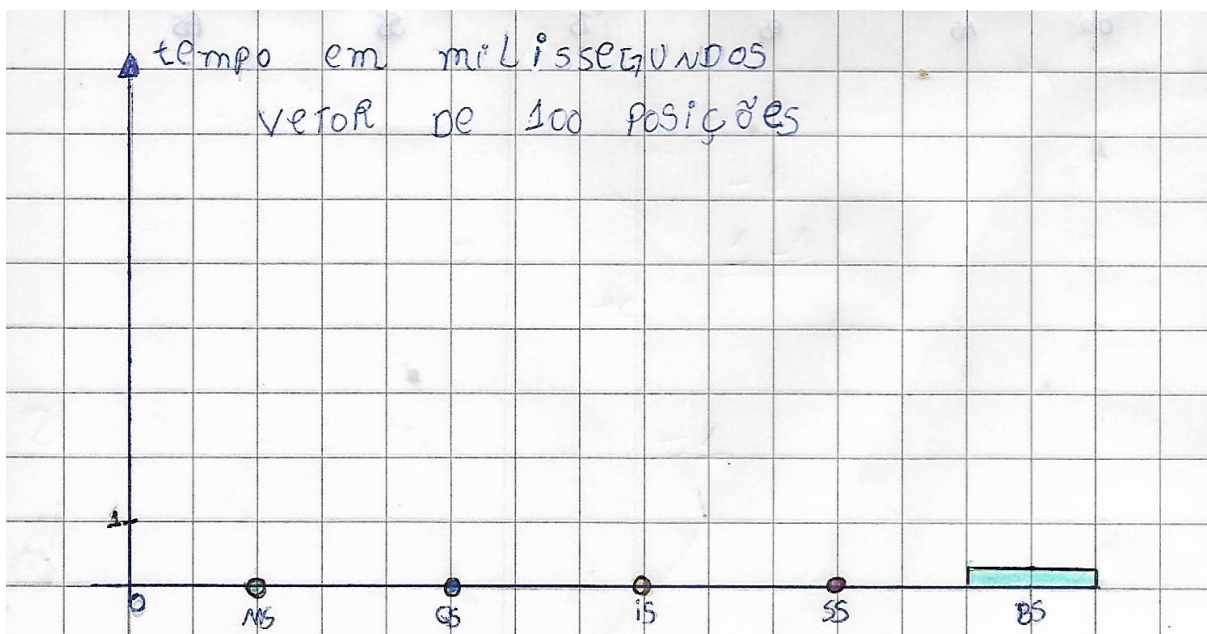 tempo em miLissEGUNDOS
VeToR De 100 Posições
1
0 MS QS iS SS BS